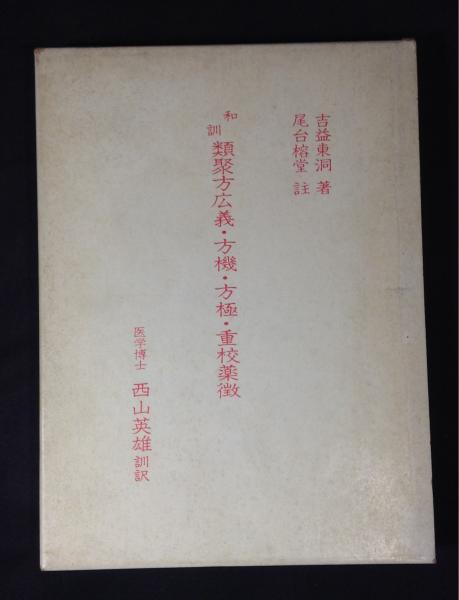 吉益東洞 著
尾台榕堂 註
和訓 類聚方広義・方機・方極・重校薬徴
医学博士 西山英雄 訓訳